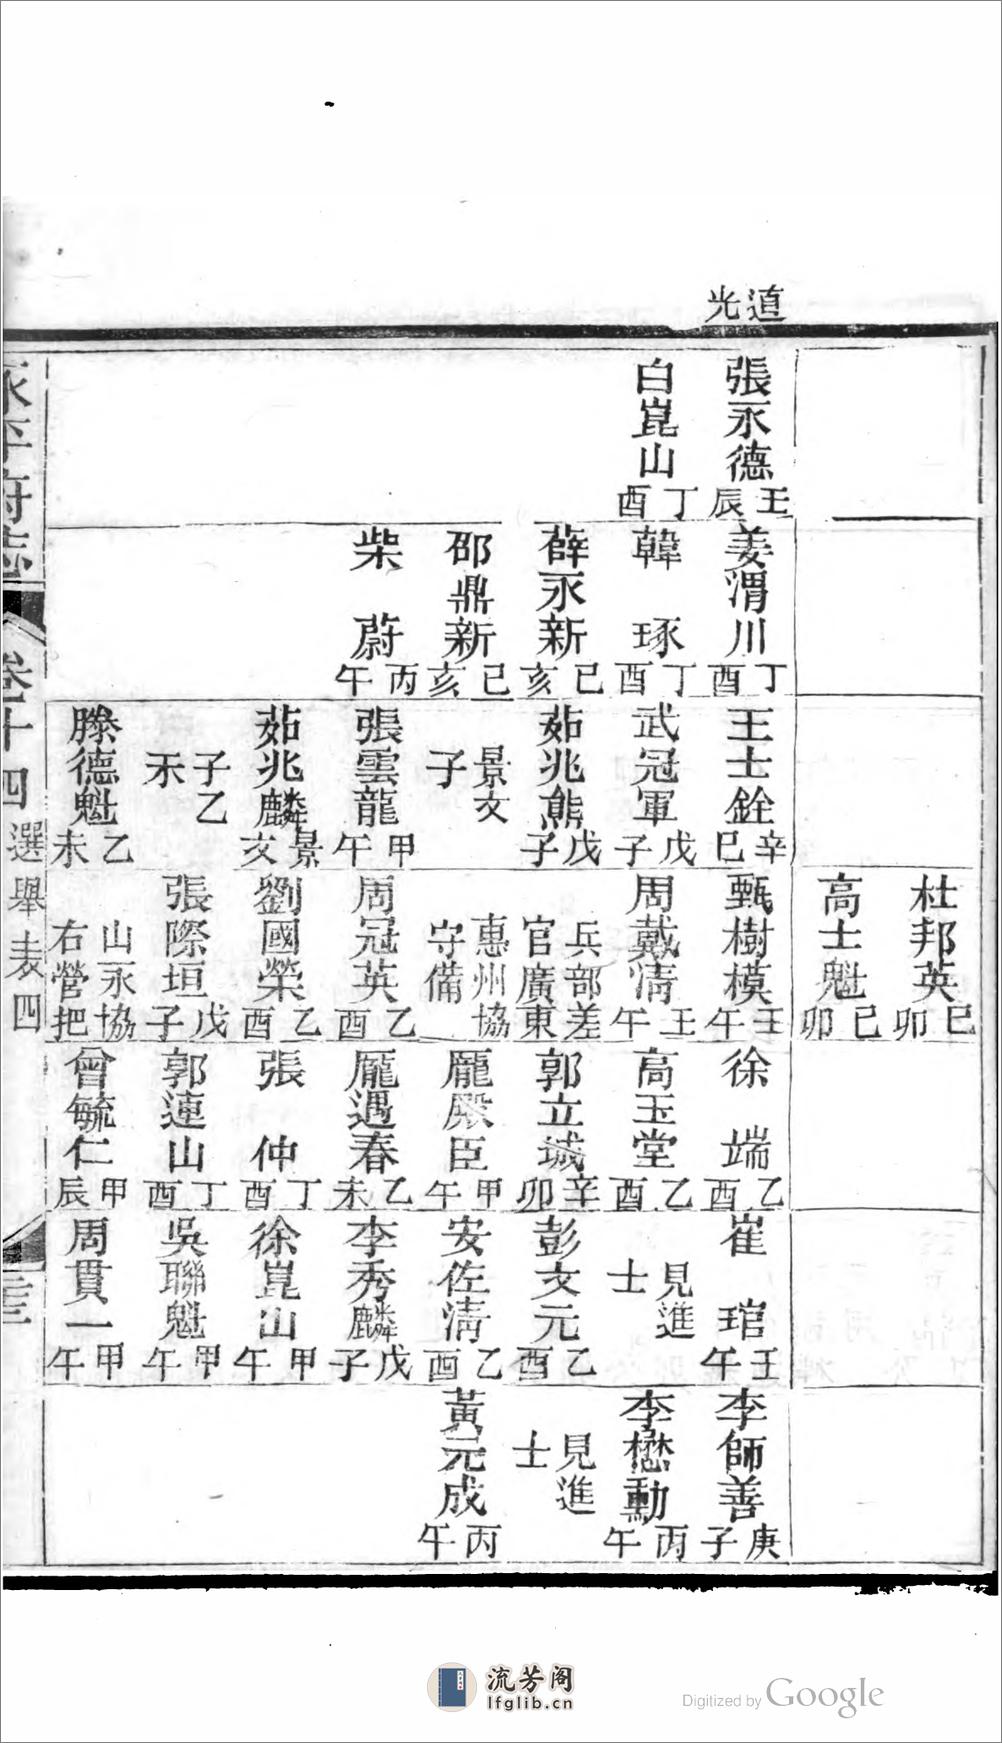 道光
張永德 壬辰
白崑山 丁酉
姜渭川 丁酉
韓琢 丁酉
薛永新 己亥
邵鼎新 己亥
柴蔚 丙午
王士銓 辛巳
武冠軍 戊子
茹兆熊 戊子
景文子
張雲龍 甲午
茹兆麟 景文
子乙未
滕德魁 乙未
杜邦英 己卯
高士魁 己卯
甄樹模 壬午
周戴清 壬午
兵部差官廣東
惠州協守備
周冠英 乙酉
劉國榮 乙酉
張際垣 戊子
山永協右營把
徐端 乙酉
高玉堂 乙酉
郭立城 辛卯
龐殿臣 甲午
龐遇春 乙未
張仲 丁酉
郭連山 丁酉
曾毓仁 甲辰
崔琯 壬午
見進士
彭文元 乙酉
安佐清 乙酉
李秀麟 戊子
徐崑山 甲午
吳聯魁 甲午
周貫一 甲午
李師善 庚子
李懋勳 丙午
見進士
黃元成 丙午
永平府志
卷十四 選舉表四
流芳阁
lfglib.cn
Digitized by Google